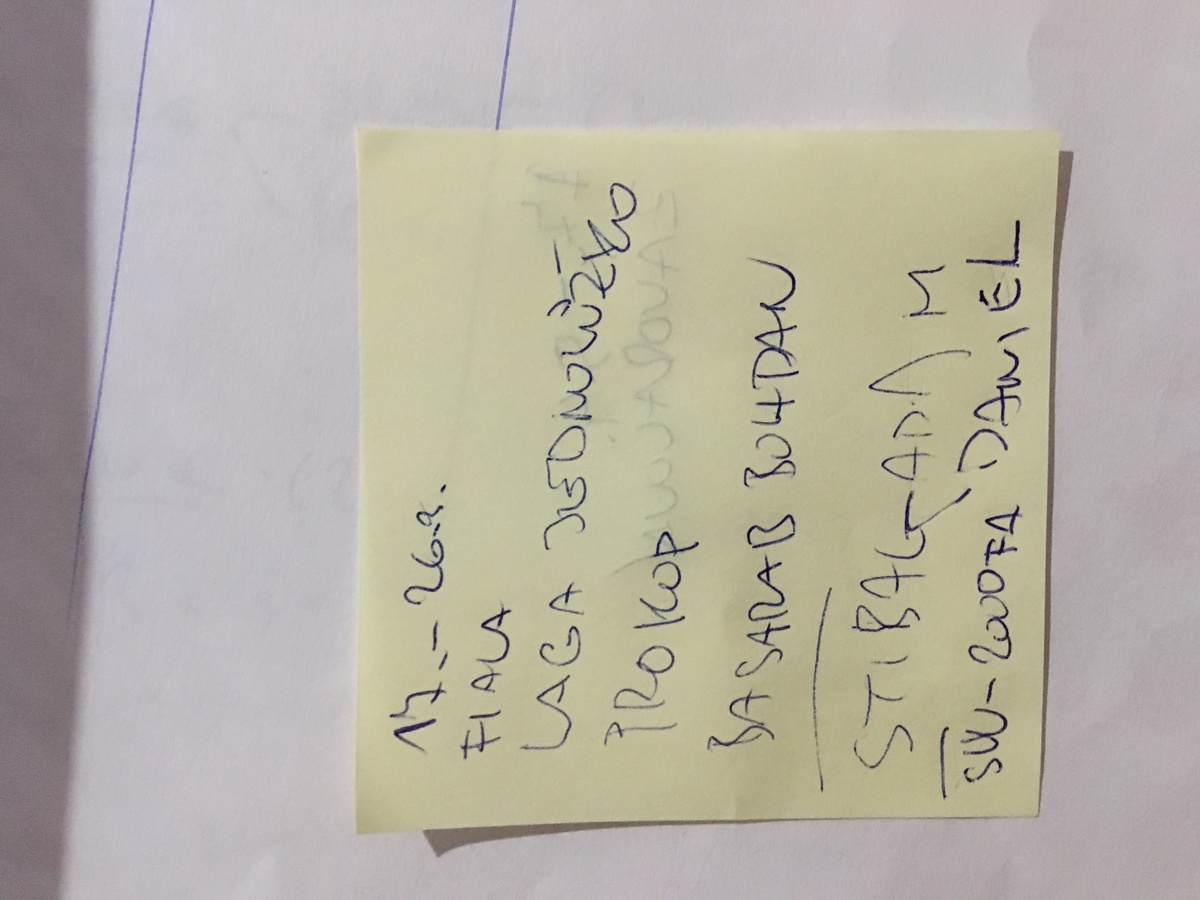 17.-26.2.
FIALA
LAGA JEDNOLŮŽKO
PROKOP
BASARAB BOHDAN
STIBAL ADAM
DANIEL